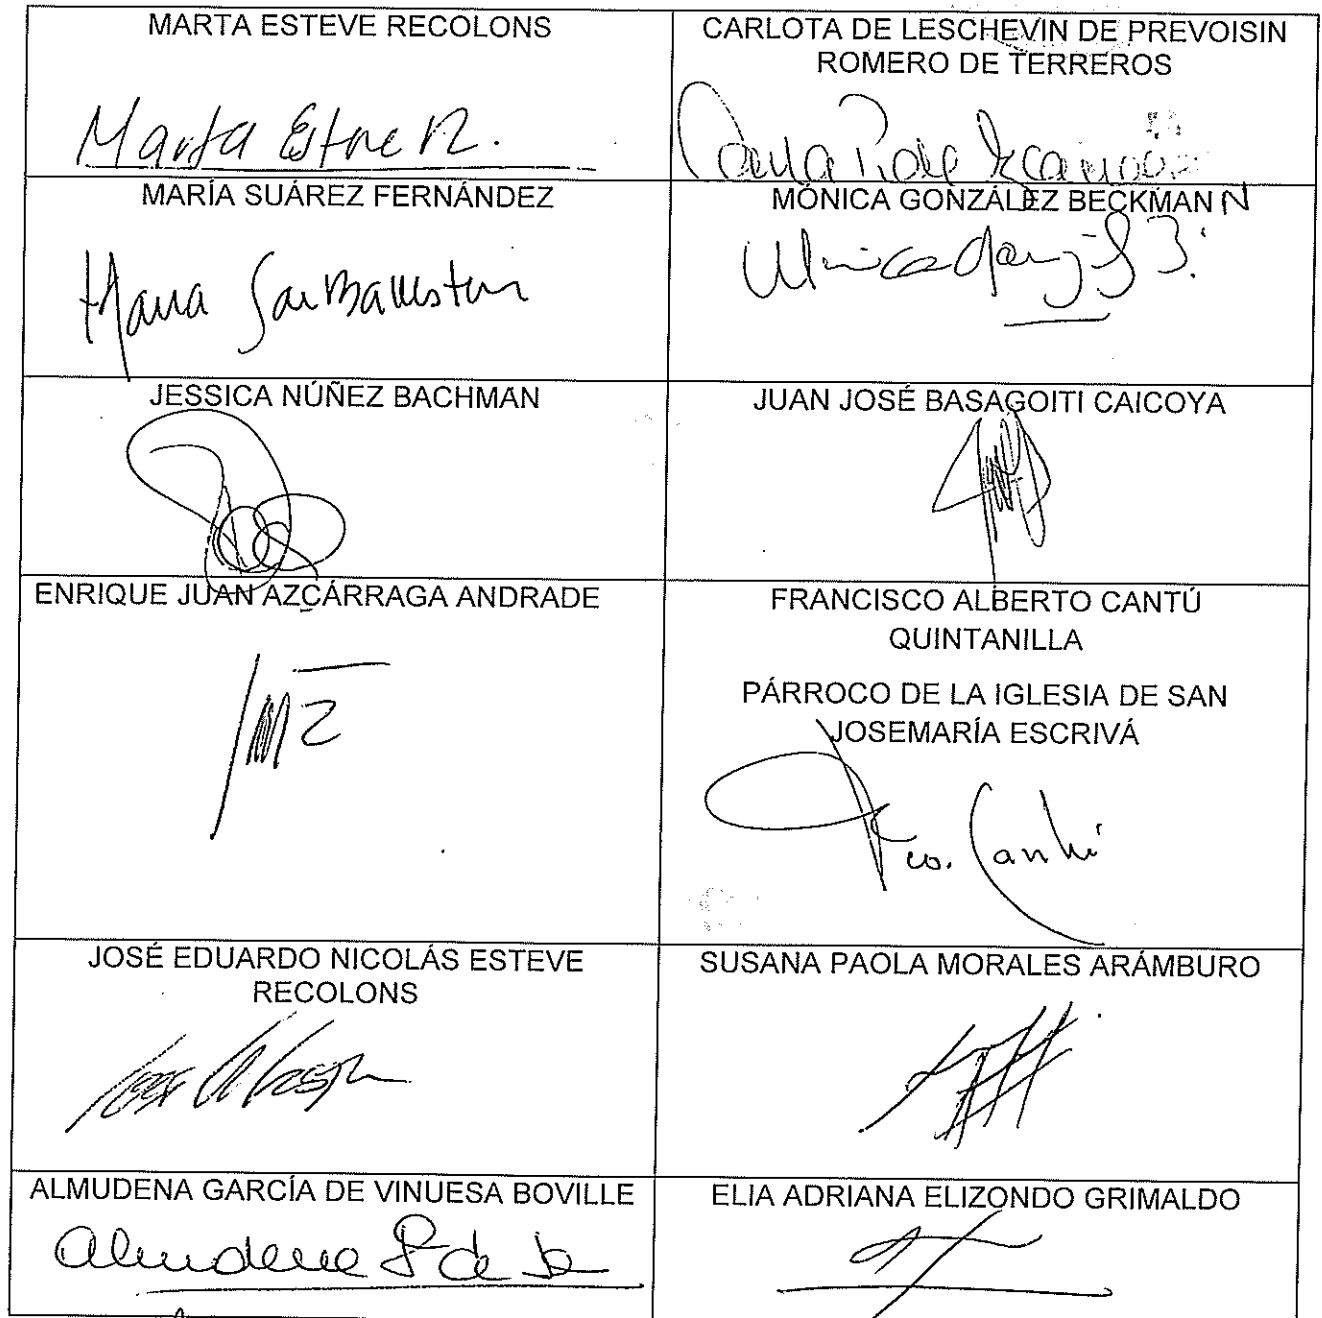 MARTA ESTEVE RECOLONS
Marta Esteve R.
CARLOTA DE LESCHEVIN DE PREVOISIN
ROMERO DE TERREROS
MARÍA SUÁREZ FERNÁNDEZ
Maria
MÓNICA GONZÁLEZ BECKMAN N
JESSICA NÚÑEZ BACHMAN
JUAN JOSÉ BASAGOITI CAICOYA
ENRIQUE JUAN AZCÁRRAGA ANDRADE
FRANCISCO ALBERTO CANTÚ
QUINTANILLA
PÁRROCO DE LA IGLESIA DE SAN
JOSEMARÍA ESCRIVÁ
Fco. Cantú
JOSÉ EDUARDO NICOLÁS ESTEVE
RECOLONS
SUSANA PAOLA MORALES ARÁMBURO
ALMUDENA GARCÍA DE VINUESA BOVILLE
Almudena G de
ELIA ADRIANA ELIZONDO GRIMALDO